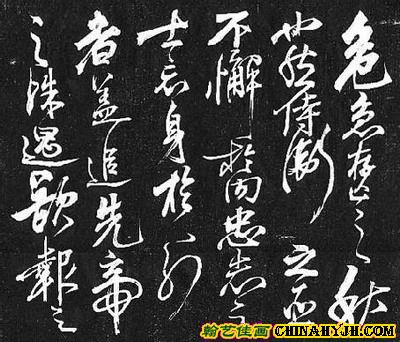 危急存亡之秋
也然侍衛之臣
不懈於内忠志之
士忘身於外
者盖追先帝
之殊遇欲報之
翰艺佳画 CHINAHYJH.COM